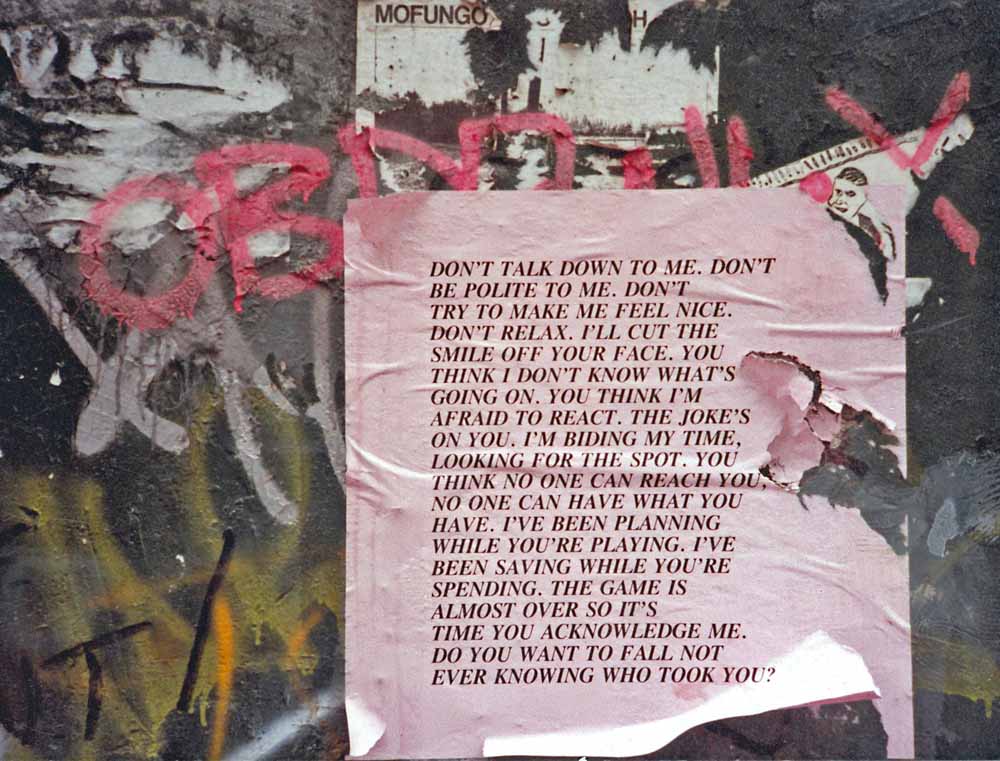 MOFUNGO
H
DON'T TALK DOWN TO ME. DON'T
BE POLITE TO ME. DON'T
TRY TO MAKE ME FEEL NICE.
DON'T RELAX. I'LL CUT THE
SMILE OFF YOUR FACE. YOU
THINK I DON'T KNOW WHAT'S
GOING ON. YOU THINK I'M
AFRAID TO REACT. THE JOKE'S
ON YOU. I'M BIDING MY TIME,
LOOKING FOR THE SPOT. YOU
THINK NO ONE CAN REACH YOU,
NO ONE CAN HAVE WHAT YOU
HAVE. I'VE BEEN PLANNING
WHILE YOU'RE PLAYING. I'VE
BEEN SAVING WHILE YOU'RE
SPENDING. THE GAME IS
ALMOST OVER SO IT'S
TIME YOU ACKNOWLEDGE ME.
DO YOU WANT TO FALL NOT
EVER KNOWING WHO TOOK YOU?